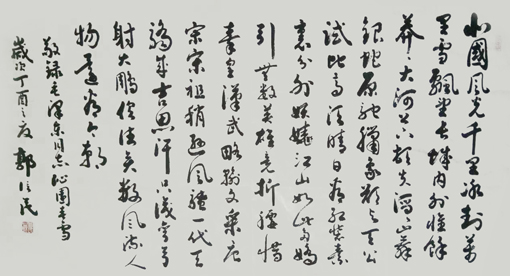 北國風光千里冰封萬
里雪飄望長城內外惟餘
莽莽大河上下頓失滔滔山舞
銀蛇原馳臘象欲與天公
試比高須晴日看紅裝素
裹分外妖嬈江山如此多嬌
引無數英雄競折腰惜
秦皇漢武略輸文采唐
宗宋祖稍遜風騷一代天
驕成吉思汗只識彎弓
射大雕俱往矣數風流人
物還看今朝
敬錄毛澤東同志沁園春雪
歲次丁酉之夏 郭